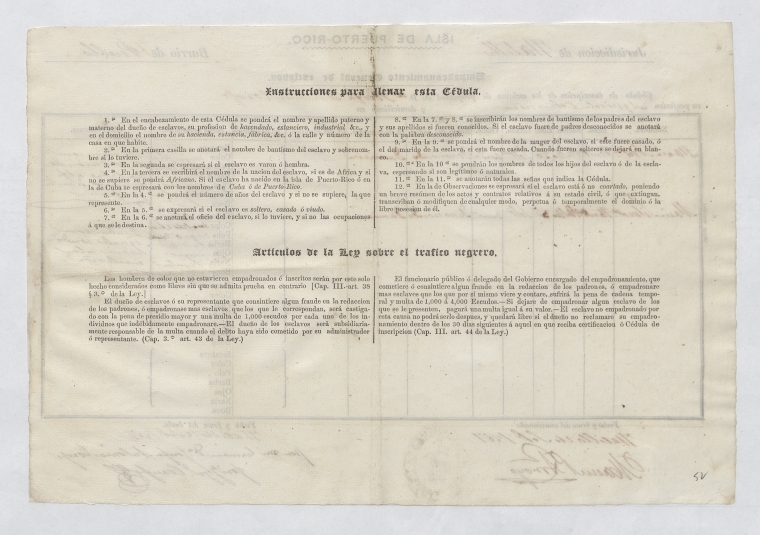 Instrucciones para llenar esta Cédula.
1.ª En el encabezamiento de esta Cédula se pondrá el nombre y apellido paterno y
materno del dueño de esclavos, su profesion de hacendado, estanciero, industrial &c., y
en el domicilio el nombre de su hacienda, estancia, fábrica, &c. ó la calle y número de la
casa en que habite.
2.ª En la primera casilla se anotará el nombre de bautismo del esclavo y sobrenom-
bre si lo tuviere.
3.ª En la segunda se espresará si el esclavo es varon ó hembra.
4.ª En la tercera se escribirá el nombre de la nacion del esclavo, si es de Africa y si
no se supiere se pondrá Africano. Si el esclavo ha nacido en la isla de Puerto-Rico ó en
la de Cuba se espresará con los nombres de Cuba ó de Puerto-Rico.
5.ª En la 4.ª se pondrá el número de años del esclavo y si no se supiere, la que
represente.
6.ª En la 5.ª se espresará si el esclavo es soltero, casado ó viudo.
7.ª En la 6.ª se anotará el oficio del esclavo, si lo tuviere, y si no las ocupaciones
á que se le destina.
8.ª En la 7.ª y 8.ª se inscribirán los nombres de bautismo de los padres del esclavo
y sus apellidos si fueren conocidos. Si el esclavo fuere de padres desconocidos se anotará
con la palabra desconocido.
9.ª En la 9.ª se pondrá el nombre de la muger del esclavo, si este fuere casado, ó
el del marido de la esclava, si esta fuere casada. Cuando fueren solteros se dejará en blan-
co.
10.ª En la 10.ª se pondrán los nombres de todos los hijos del esclavo ó de la escla-
va, expresando si son legítimos ó naturales.
11.ª En la 11.ª se anotarán todas las señas que indica la Cédula.
12.ª En la de Observaciones se espresará si el esclavo está ó no coartado, poniendo
un breve resúmen de los actos y contratos relativos á su estado civil, ó que extingan,
transcriban ó modifiquen de cualquier modo, perpetua ó temporalmente el dominio ó la
libre posesion de él.
Artículos de la Ley sobre el trafico negrero.
Los hombres de color que no estuvieren empadronados ó inscritos serán por este solo
hecho considerados como libres sin que se admita prueba en contrario [Cap. III. art. 38
§ 3.º de la Ley.]
El dueño de esclavos ó su representante que consintiere algun fraude en la redaccion
de los padrones, ó empadronare mas esclavos que los que le correspondan, será casti-
gado con la pena de presidio mayor y una multa de 1,000 escudos por cada uno de los in-
dividuos que indebidamente empadronare.—El dueño de los esclavos será subsidiaria-
mente responsable de la multa cuando el delito haya sido cometido por su administrador
ó representante. (Cap. 3.º art. 43 de la Ley.)
El funcionario público ó delegado del Gobierno encargado del empadronamiento, que
cometiere ó consintiere algun fraude en la redaccion de los padrones ó, empadronare
mas esclavos que los que por sí mismo viere y contare, sufrirá la pena de cadena tempo-
ral y multa de 1,000 á 4,000 Escudos.—Si dejare de empadronar algun esclavo de los
que se le presenten, pagará una multa igual á su valor.—El esclavo no empadronado por
esta causa no podrá serlo despues, y quedará libre si el dueño no reclamare su empadro-
namiento dentro de los 30 dias siguientes á aquel en que reciba certificacion ó Cédula de
inscripcion (Cap. III. art. 44 de la Ley.)